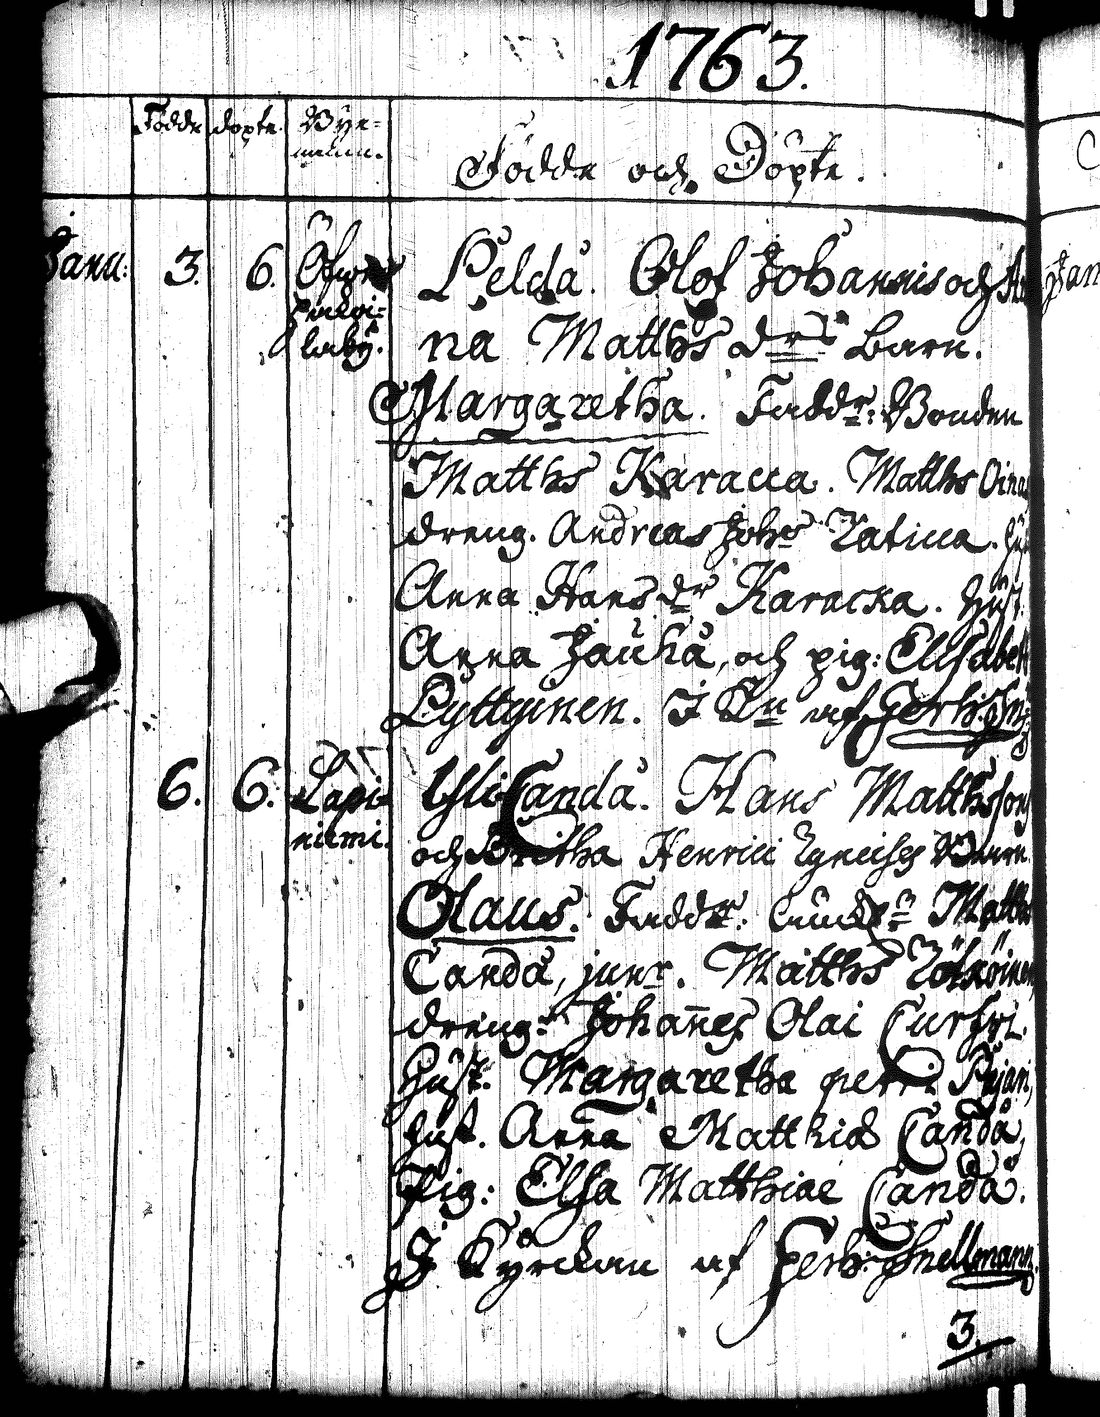 1763.
Födde döpte Bye-
namn.
Födde och Döpte.
Janu: 3. 6. Öfwer
laby.
Peldå. Olof Johannis och An
na Matths drs Barn.
Margaretha. Faddr: Bonden
Matths Karacca. Matths Oina
dreng. Andreas Johs Ratica.
Anna Hans dr Karacka. Hust.
Anna Jauhå, och pig: Elisabeth
Lyttyinen. I af
6. 6. Lapi-
niemi.
Canda. Hans Matthsson
och Bretha Henrici Barn
Olaus. Faddr. Matths
Canda, junr. Matths
dreng: Johanes Olai Curki.
Hust. Margaretha petri Pujari,
hust. Anna Matthiæ Canda,
Pig: Elsa Matthiae Canda.
I Kyrckan af Snellmann
3.